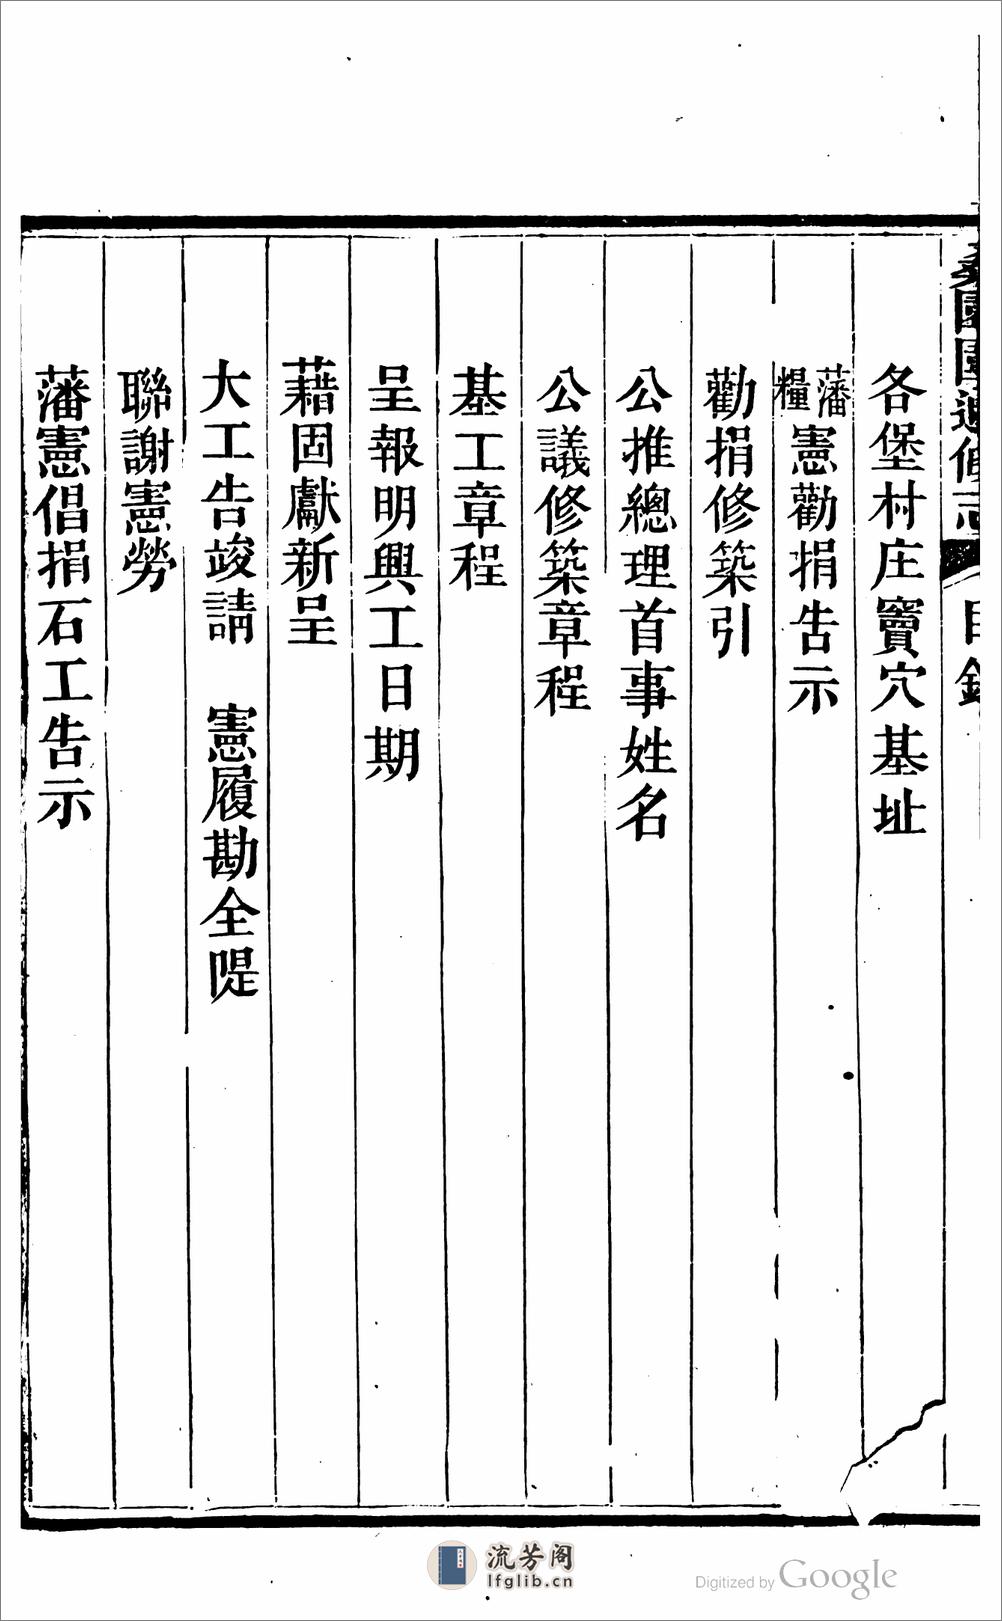 桑園圍通修志 目錄
各堡村庄竇穴基址
藩糧憲勸捐告示
勸捐修築引
公推總理首事姓名
公議修築章程
基工章程
呈報明興工日期
藉固獻新呈
大工告竣請 憲履勘全隄
聯謝憲勞
藩憲倡捐石工告示
流芳阁
lfglib.cn
Digitized by Google